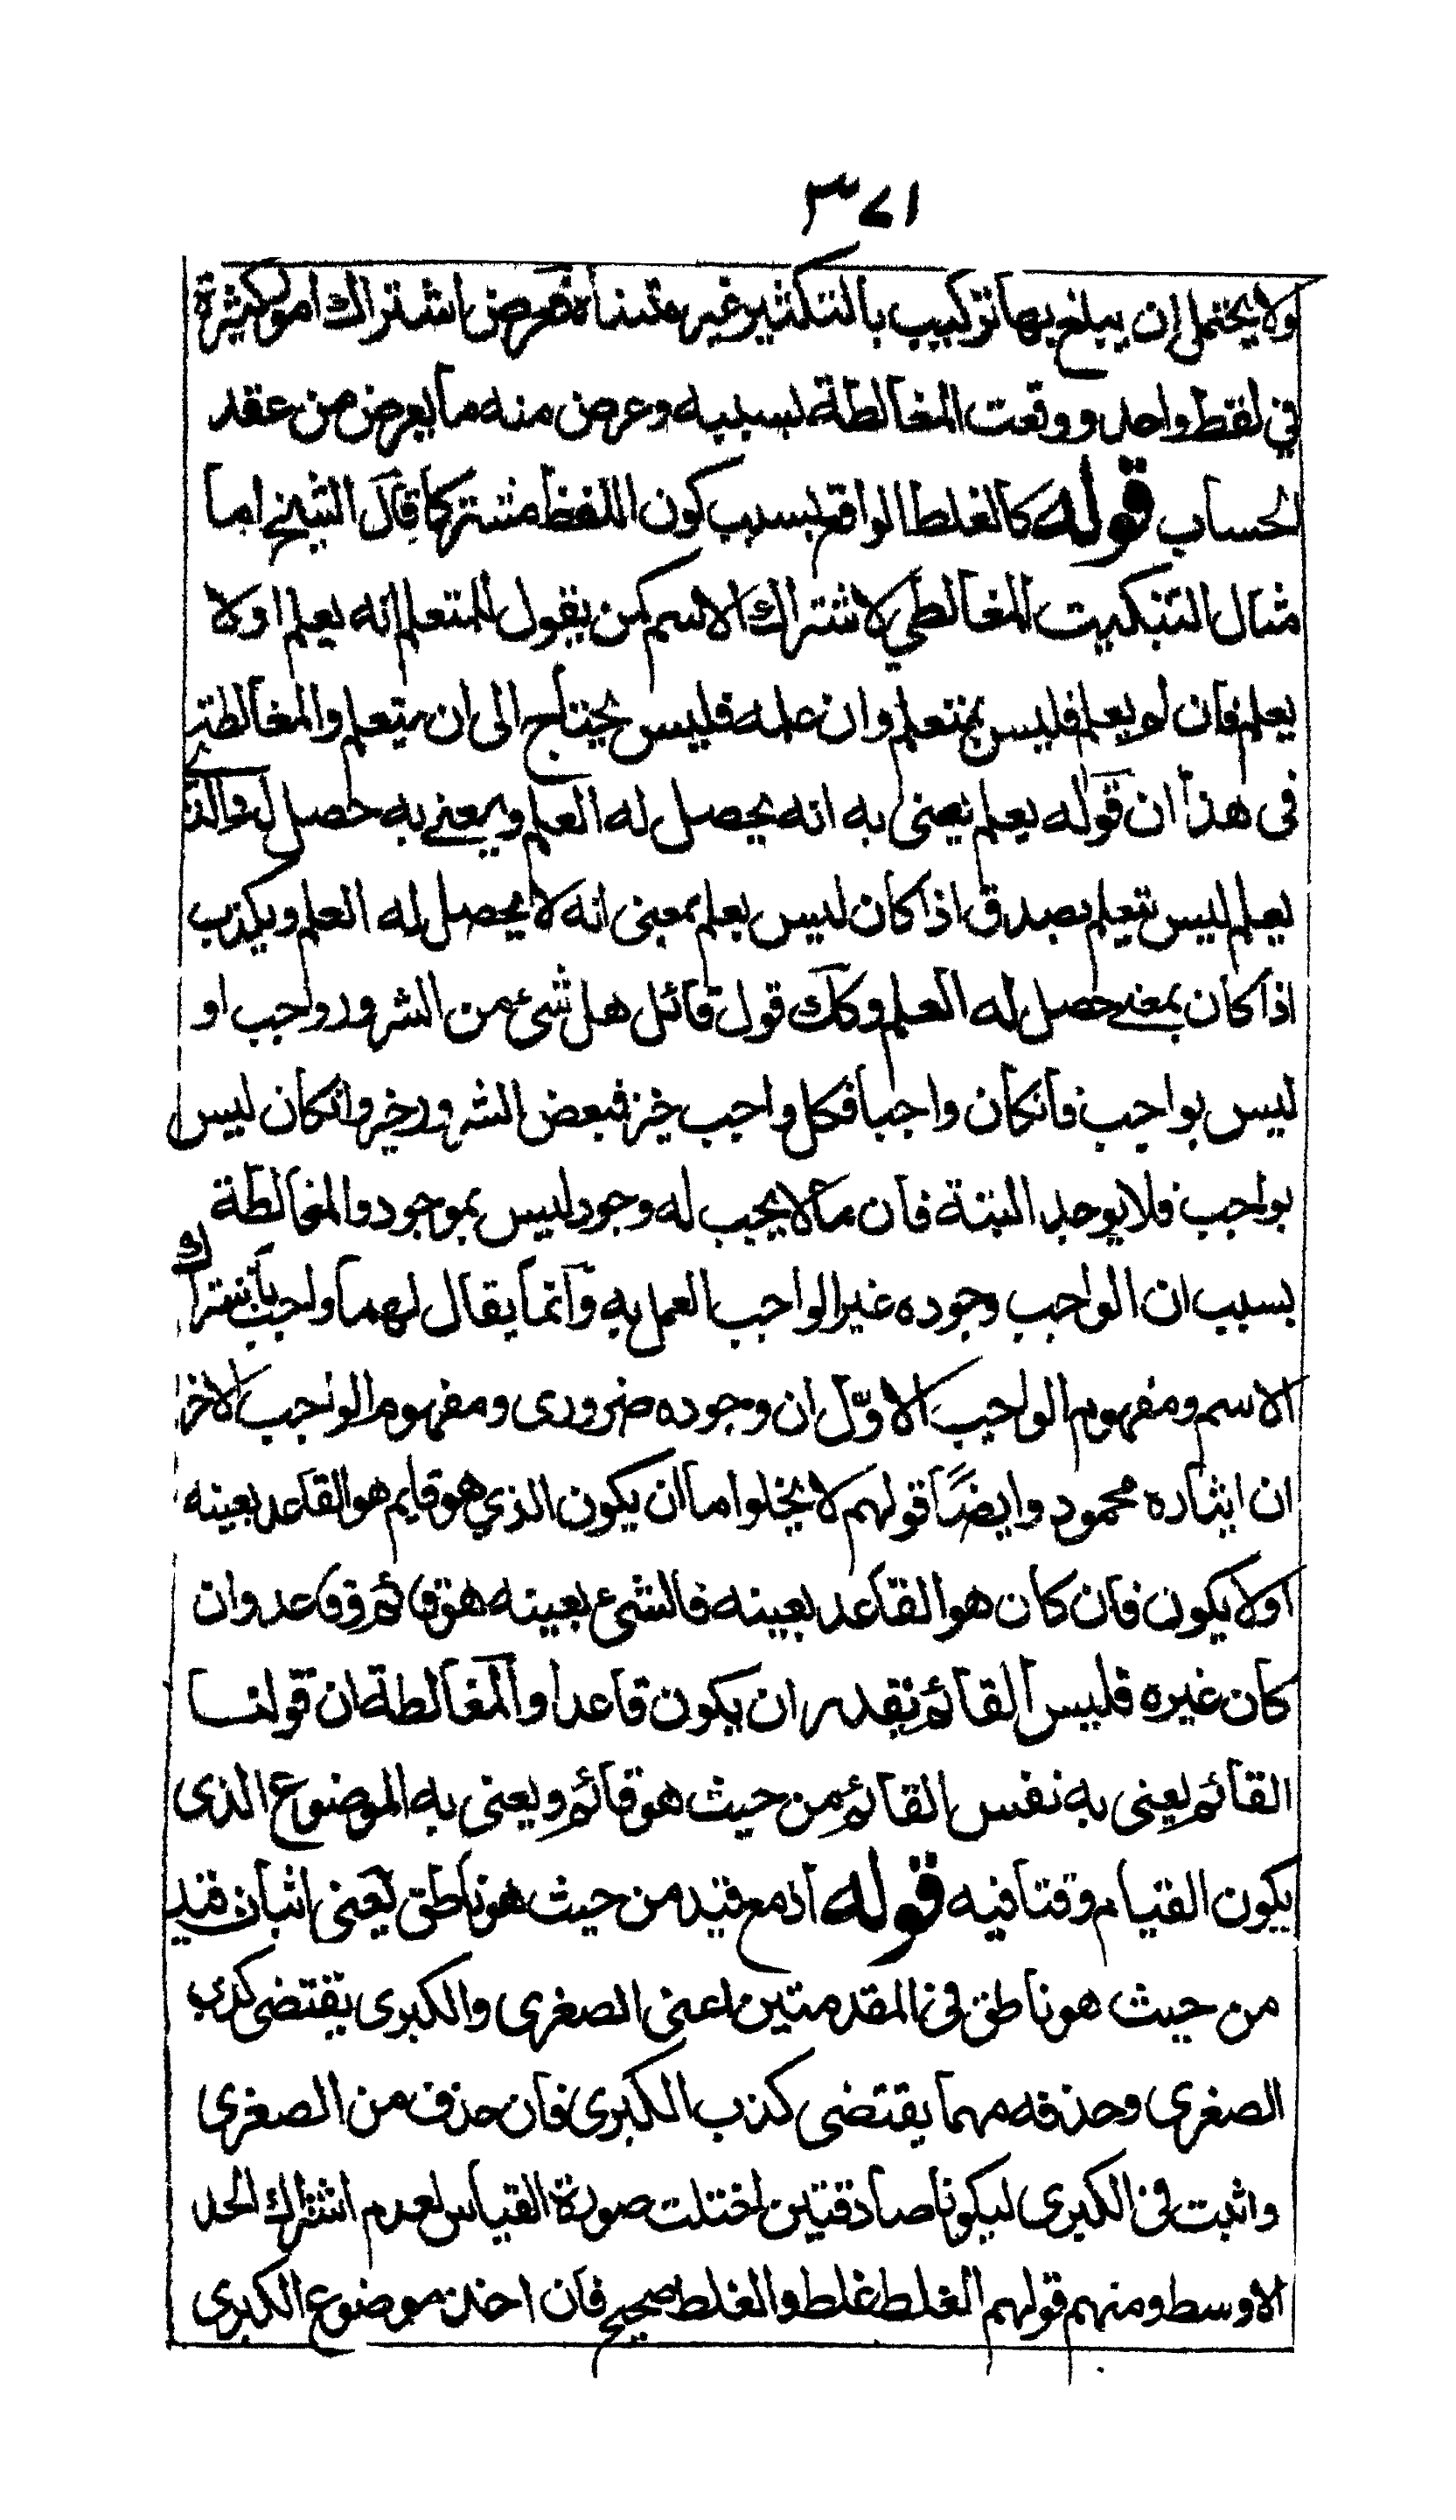 ٣٧١
ولا يحتمل ان يبلغ بها تركيب بالتكثير غير متناه فعرض اشتراك امور كثيرة
في لفظ واحد ووقعت المغالطة بسببه وعرض منه ما يعرض من عقد
الحساب قوله كالغلط الواقع بسبب كون اللفظ مشتركا قال الشيخ اما
مثال التبكيت المغالطي لاشتراك الاسم كمن يقول للمتعلم انه يعلم او لا
يعلم فان لو يعلم فليس بمتعلم وان علمه فليس يحتاج الى ان يتعلم والمغالطة
في هذا ان قوله يعلم يعنى به انه يحصل له العلم ويعنى به حصل له والذ
يعلم ليس يتعلم يصدق اذا كان ليس يعلم بمعنى انه لا يحصل له العلم ويكذب
اذا كان بمعنى حصل له العلم وكك قول قائل هل شىء من الشرور واجب او
ليس بواجب فانكان واجبا فكل واجب خير فبعض الشرور خير وانكان ليس
بواجب فلا يوجد البتة فان ما لا يجب له وجود ليس بموجود والمغالطة
بسبب ان الواجب وجوده غير الواجب العمل به وانما يقال لهما واجب باشتراك
الاسم ومفهوم الواجب الاوّل ان وجوده ضرورى ومفهوم الواجب الاخر
ان ايثاره محمود وايضًا قولهم لا يخلوا ما ان يكون الذي هو قايم هو القاعد بعينه
اولا يكون فان كان هو القاعد بعينه فالشىء بعينه هو قائم وقاعد وان
كان غيره فليس القائم بقدر ان يكون قاعدا والمغالطة ان قولنا
القائم يعنى به نفس القائم من حيث هو قائم ويعنى به الموضوع الذى
يكون القيام وقتا فيه قوله اذ مع قيد من حيث هو ناطق يعنى اثبات قيد
من حيث هو ناطق في المقدمتين اعنى الصغرى والكبرى يقتضى كذب
الصغرى وحذفه مهما يقتضى كذب الكبرى فان حذف من الصغرى
واثبت في الكبرى ليكونا صادقتين اختلت صورة القياس لعدم اشتراك الحد
الاوسط ومنهم قولهم الغلط غلط والغلط صحيح فان اخذ موضوع الكبرى